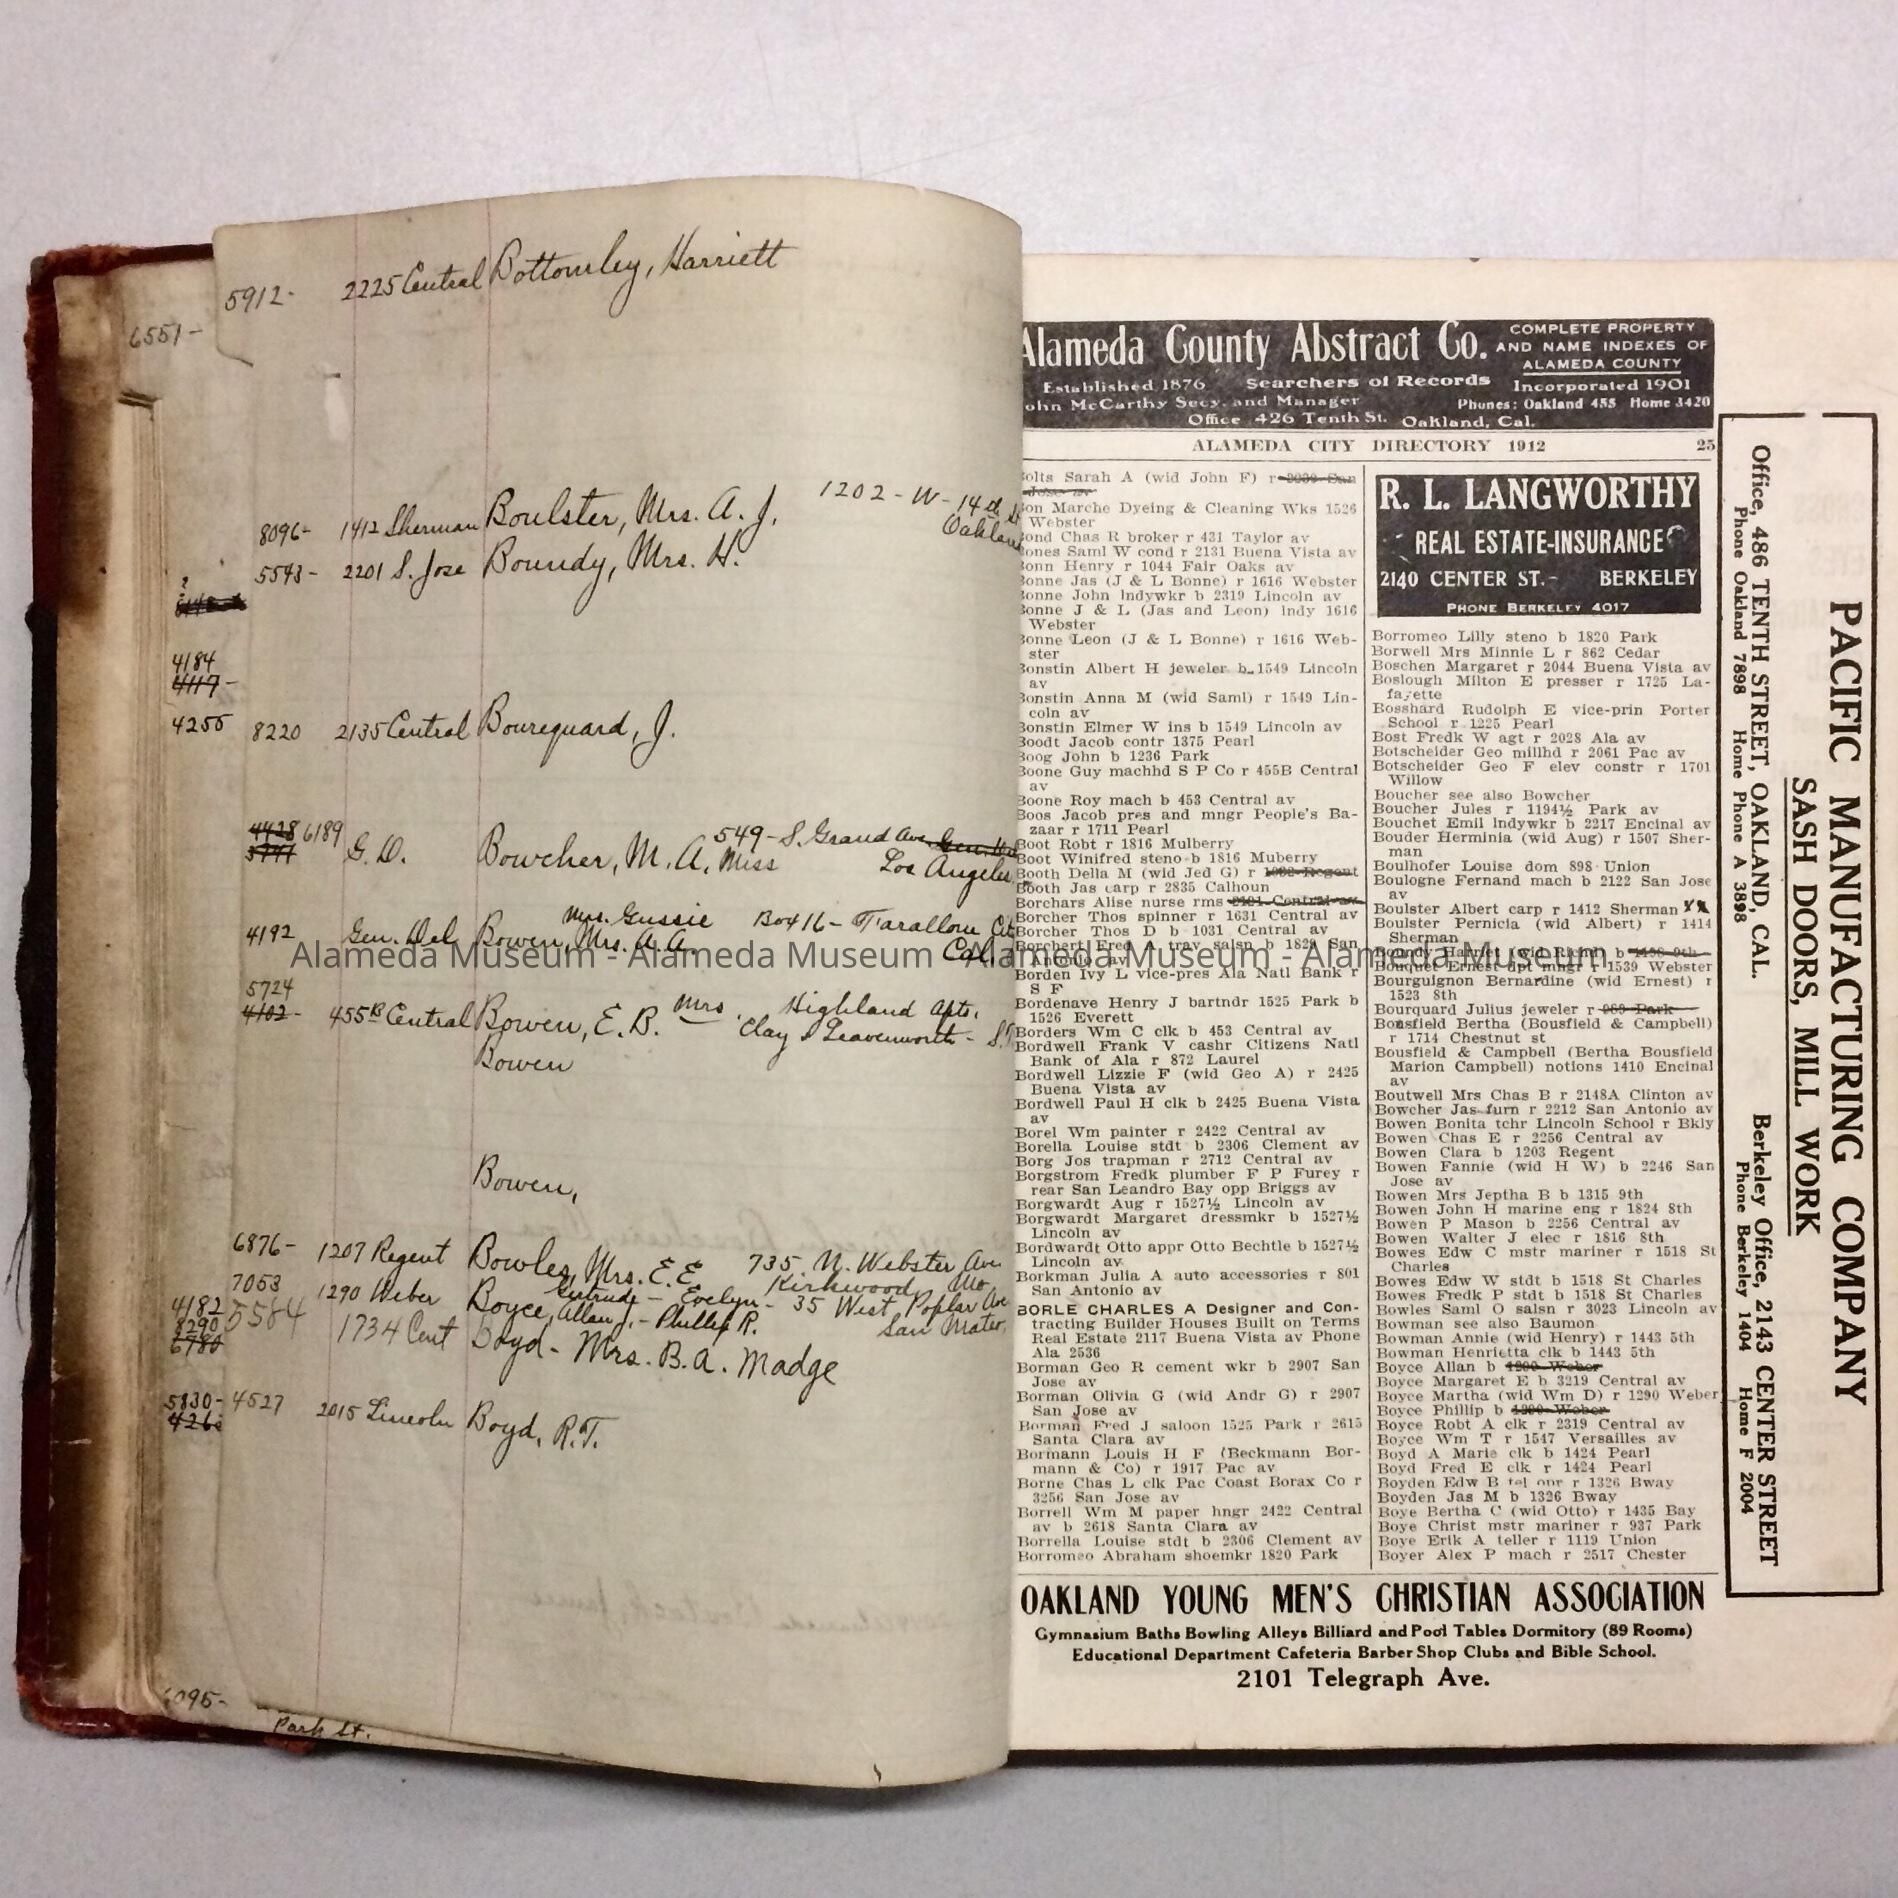 5912- 2225 Central Bottomley, Harriett
6551-
8096- 1412 Sherman Boulster, Mrs. A. J. 1202 - W - 14th St
Oakland
5543- 2201 S. Jose Boundy, Mrs. H.
?
4184
4117-
4255 8220 2135 Central Bourquard, J.
4428 6189 G. D. Bowcher, M. A. Miss 549 - S. Grand Ave
Los Angeles
4192 Gen. Del Bowen, Mrs. A. A. Mrs. Gussie Box 16 - Farallone Cit
Cal.
5724
4102- 455B Central Bowen, E. B. Mrs. Highland Apts.
Clay & Leavenworth - S.
Bowen
Bowen,
6876- 1207 Regent Bowles, Mrs. E. E. 735 N. Webster Ave
Kirkwood, Mo
7053 1290 Weber Boyce, Allan J. - Phillip R. Gertrude - Evelyn - 35 West Poplar Ave
San Mateo,
4182 5584 1734 Cent Boyd - Mrs. B. A. Madge
8290
6780
5830- 4527 2015 Lincoln Boyd, R. T.
4260
6095-
Park St.
Alameda County Abstract Co.
COMPLETE PROPERTY
AND NAME INDEXES OF
ALAMEDA COUNTY
Established 1876 Searchers of Records Incorporated 1901
ohn McCarthy Secy. and Manager Phones: Oakland 455 Home 3420
Office 426 Tenth St. Oakland, Cal.
ALAMEDA CITY DIRECTORY 1912 25
olts Sarah A (wid John F) r 2039 San
Jose av
on Marche Dyeing & Cleaning Wks 1526
Webster
ond Chas R broker r 431 Taylor av
ones Saml W cond r 2131 Buena Vista av
onn Henry r 1044 Fair Oaks av
onne Jas (J & L Bonne) r 1616 Webster
onne John lndywkr b 2319 Lincoln av
onne J & L (Jas and Leon) lndy 1616
Webster
Bonne Leon (J & L Bonne) r 1616 Web-
ster
Bonstin Albert H jeweler b 1549 Lincoln
av
Bonstin Anna M (wid Saml) r 1549 Lin-
coln av
Bonstin Elmer W ins b 1549 Lincoln av
Boodt Jacob contr 1375 Pearl
Boog John b 1236 Park
Boone Guy machhd S P Co r 455B Central
av
Boone Roy mach b 453 Central av
Boos Jacob pres and mngr People's Ba-
zaar r 1711 Pearl
Boot Robt r 1816 Mulberry
Boot Winifred steno b 1816 Muberry
Booth Della M (wid Jed G) r Regent
Booth Jas carp r 2835 Calhoun
Borchars Alise nurse rms 2101 Central av
Borcher Thos spinner r 1631 Central av
Borcher Thos D b 1031 Central av
Borchert Fred A trav salsn b 1829 San
Antonio av
Borden Ivy L vice-pres Ala Natl Bank r
S F
Bordenave Henry J bartndr 1525 Park b
1526 Everett
Borders Wm C clk b 453 Central av
Bordwell Frank V cashr Citizens Natl
Bank of Ala r 872 Laurel
Bordwell Lizzie F (wid Geo A) r 2425
Buena Vista av
Bordwell Paul H clk b 2425 Buena Vista
av
Borel Wm painter r 2422 Central av
Borella Louise stdt b 2306 Clement av
Borg Jos trapman r 2712 Central av
Borgstrom Fredk plumber F P Furey r
rear San Leandro Bay opp Briggs av
Borgwardt Aug r 1527½ Lincoln av
Borgwardt Margaret dressmkr b 1527½
Lincoln av
Bordwardt Otto appr Otto Bechtle b 1527½
Lincoln av
Borkman Julia A auto accessories r 801
San Antonio av
BORLE CHARLES A Designer and Con-
tracting Builder Houses Built on Terms
Real Estate 2117 Buena Vista av Phone
Ala 2536
Borman Geo R cement wkr b 2907 San
Jose av
Borman Olivia G (wid Andr G) r 2907
San Jose av
Borman Fred J saloon 1525 Park r 2615
Santa Clara av
Bormann Louis H F (Beckmann Bor-
mann & Co) r 1917 Pac av
Borne Chas L clk Pac Coast Borax Co r
3256 San Jose av
Borrell Wm M paper hngr 2422 Central
av b 2618 Santa Clara av
Borrella Louise stdt b 2306 Clement av
Borromeo Abraham shoemkr 1820 Park
R. L. LANGWORTHY
REAL ESTATE-INSURANCE
2140 CENTER ST. - BERKELEY
PHONE BERKELEY 4017
Borromeo Lilly steno b 1820 Park
Borwell Mrs Minnie L r 862 Cedar
Boschen Margaret r 2044 Buena Vista av
Boslough Milton E presser r 1725 La-
fayette
Bosshard Rudolph E vice-prin Porter
School r 1225 Pearl
Bost Fredk W agt r 2028 Ala av
Botscheider Geo millhd r 2061 Pac av
Botscheider Geo F elev constr r 1701
Willow
Boucher see also Bowcher
Boucher Jules r 1194½ Park av
Bouchet Emil lndywkr b 2217 Encinal av
Bouder Herminia (wid Aug) r 1507 Sher-
man
Boulhofer Louise dom 898 Union
Boulogne Fernand mach b 2122 San Jose
av
Boulster Albert carp r 1412 Sherman
Boulster Pernicia (wid Albert) r 1414
Sherman
Boundy Harriet (wid Richd) b 9th
Bouquet Ernest dpt mngr r 1539 Webster
Bourguignon Bernardine (wid Ernest) r
1523 8th
Bourquard Julius jeweler r 969 Park
Bousfield Bertha (Bousfield & Campbell)
r 1714 Chestnut st
Bousfield & Campbell (Bertha Bousfield
Marion Campbell) notions 1410 Encinal
av
Boutwell Mrs Chas B r 2148A Clinton av
Bowcher Jas furn r 2212 San Antonio av
Bowen Bonita tchr Lincoln School r Bkly
Bowen Chas E r 2256 Central av
Bowen Clara b 1203 Regent
Bowen Fannie (wid H W) b 2246 San
Jose av
Bowen Mrs Jeptha B b 1315 9th
Bowen John H marine eng r 1824 8th
Bowen P Mason b 2256 Central av
Bowen Walter J elec r 1816 8th
Bowes Edw C mstr mariner r 1518 St
Charles
Bowes Edw W stdt b 1518 St Charles
Bowes Fredk P stdt b 1518 St Charles
Bowles Saml O salsn r 3023 Lincoln av
Bowman see also Baumon
Bowman Annie (wid Henry) r 1443 5th
Bowman Henrietta clk b 1443 5th
Boyce Allan b 1290 Weber
Boyce Margaret E b 3219 Central av
Boyce Martha (wid Wm D) r 1290 Weber
Boyce Phillip b 1290 Weber
Boyce Robt A clk r 2319 Central av
Boyce Wm T r 1547 Versailles av
Boyd A Marie clk b 1424 Pearl
Boyd Fred E clk r 1424 Pearl
Boyden Edw B tel opr r 1326 Bway
Boyden Jas M b 1326 Bway
Boye Bertha C (wid Otto) r 1435 Bay
Boye Christ mstr mariner r 937 Park
Boye Erik A teller r 1119 Union
Boyer Alex P mach r 2517 Chester
OAKLAND YOUNG MEN'S CHRISTIAN ASSOCIATION
Gymnasium Baths Bowling Alleys Billiard and Pool Tables Dormitory (89 Rooms)
Educational Department Cafeteria Barber Shop Clubs and Bible School.
2101 Telegraph Ave.
PACIFIC MANUFACTURING COMPANY
SASH DOORS, MILL WORK
Office, 486 TENTH STREET, OAKLAND, CAL. Berkeley Office, 2143 CENTER STREET
Phone Oakland 7898 Home Phone A 3898 Phone Berkeley 1404 Home F 2004
Alameda Museum - Alameda Museum - Alameda Museum - Alameda Museum